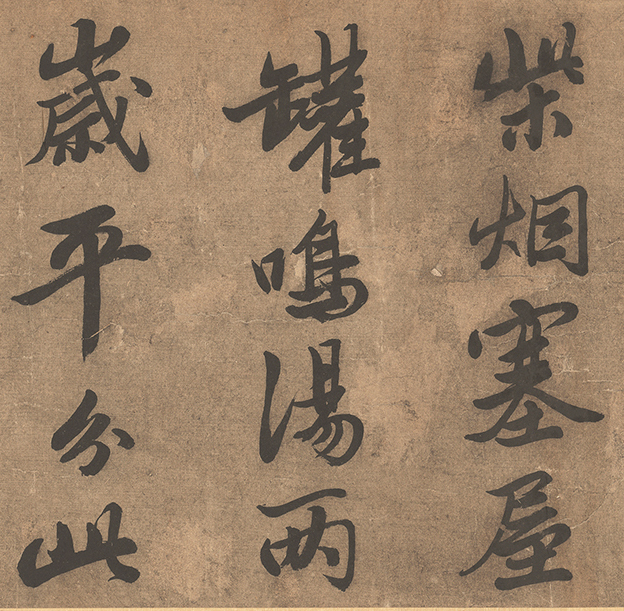 柴烟塞屋
罐鳴湯两
歲平分此